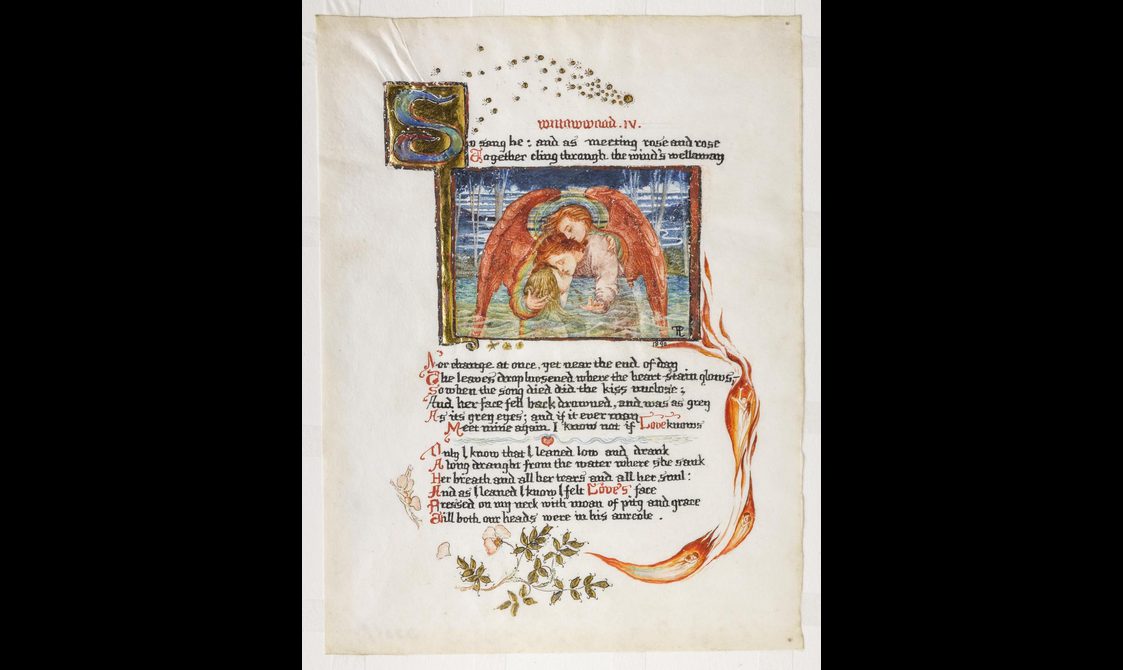 Willowwood. IV.
So sang he : and as meeting rose and rose
Together cling through the wind's wellaway
Nor change at once, yet near the end of day
The leaves drop loosened where the heart-stain glows,-
So when the song died did the kiss unclose;
And her face fell back drowned, and was as grey
As its grey eyes; and if it ever may
Meet mine again I know not if Love knows
Only I know that I leaned low and drank
A long draught from the water where she sank
Her breath and all her tears and all her soul:
And as I leaned I know I felt Love's face
Pressed on my neck with moan of pity and grace
Till both our heads were in his aureole .